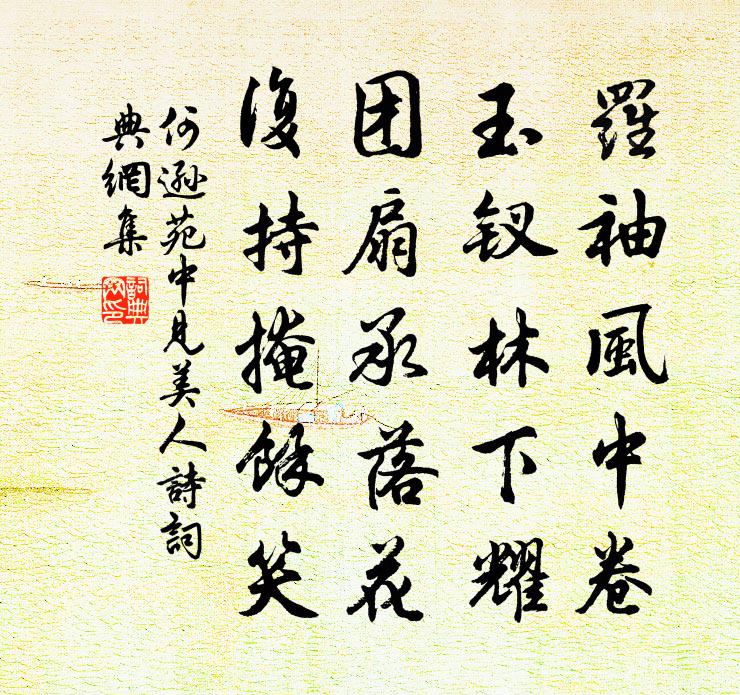 羅袖風中卷
玉钗林下耀
团扇承落花
復持掩餘笑
何遜苑中見美人詩詞
典網集
詞典